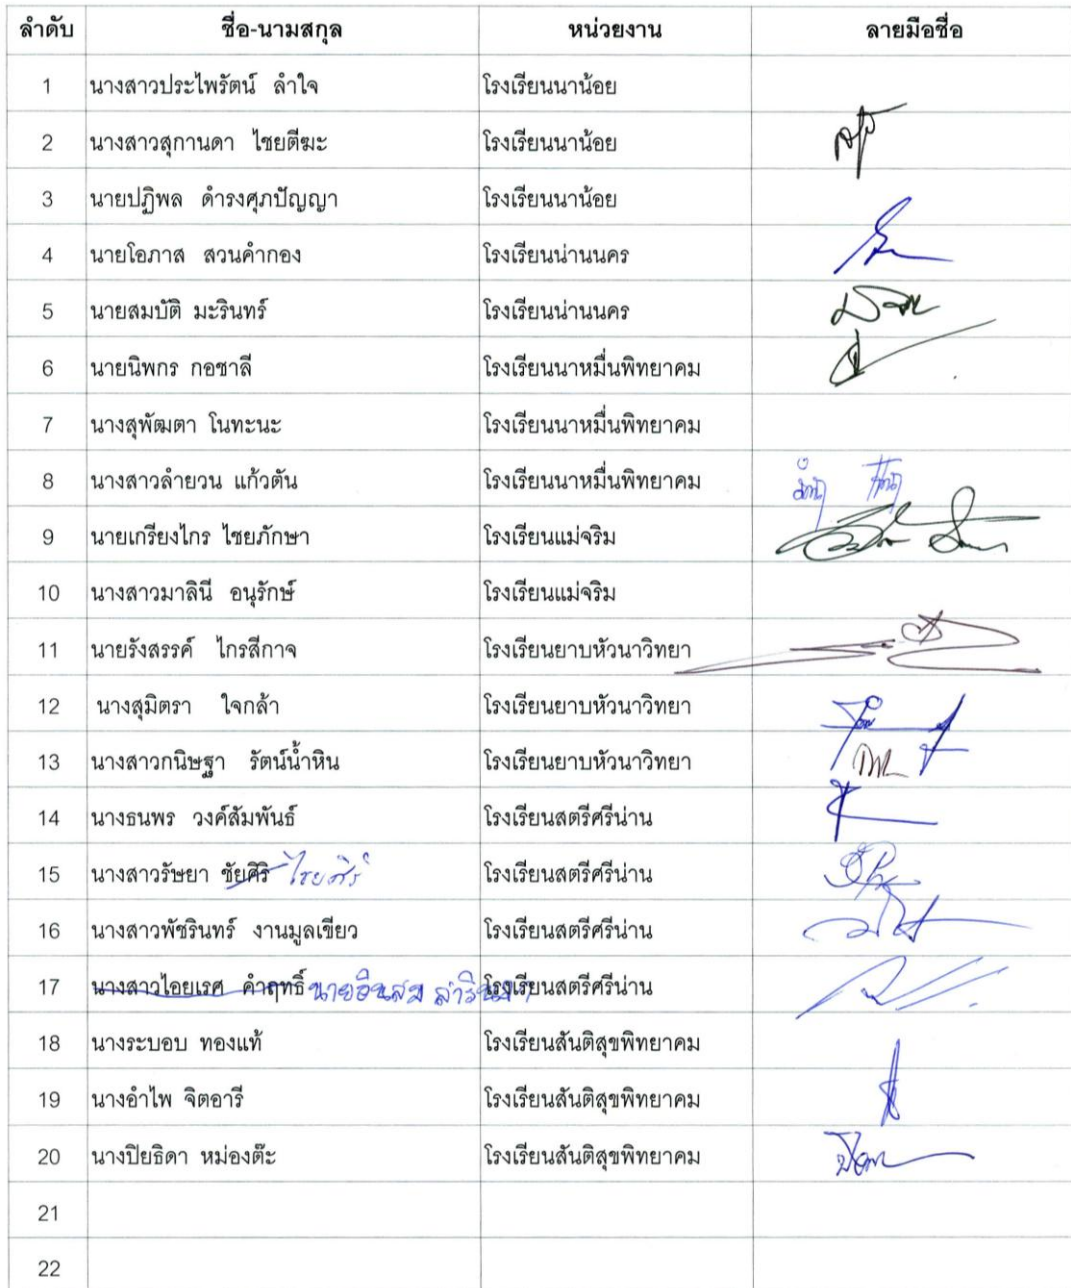 ลำดับ ชื่อ-นามสกุล หน่วยงาน ลายมือชื่อ
1 นางสาวประไพรัตน์ ลำใจ โรงเรียนนาน้อย
2 นางสาวสุกานดา ไชยตีฆะ โรงเรียนนาน้อย
3 นายปฏิพล ดำรงศุภปัญญา โรงเรียนนาน้อย
4 นายโอภาส สวนคำกอง โรงเรียนน่านนคร
5 นายสมบัติ มะรินทร์ โรงเรียนน่านนคร
6 นายนิพกร กอชาลี โรงเรียนนาหมื่นพิทยาคม
7 นางสุพัฒตา โนทะนะ โรงเรียนนาหมื่นพิทยาคม
8 นางสาวลำยวน แก้วตัน โรงเรียนนาหมื่นพิทยาคม
9 นายเกรียงไกร ไชยภักษา โรงเรียนแม่จริม
10 นางสาวมาลินี อนุรักษ์ โรงเรียนแม่จริม
11 นายรังสรรค์ ไกรสีกาจ โรงเรียนยาบหัวนาวิทยา
12 นางสุมิตรา ใจกล้า โรงเรียนยาบหัวนาวิทยา
13 นางสาวกนิษฐา รัตน์น้ำหิน โรงเรียนยาบหัวนาวิทยา
14 นางธนพร วงค์สัมพันธ์ โรงเรียนสตรีศรีน่าน
15 นางสาวรัษยา ชัยศิริ ไชยศิริ โรงเรียนสตรีศรีน่าน
16 นางสาวพัชรินทร์ งานมูลเขียว โรงเรียนสตรีศรีน่าน
17 นางสาวไอยเรศ คำฤทธิ์ นายอินสม โรงเรียนสตรีศรีน่าน
18 นางระบอบ ทองแท้ โรงเรียนสันติสุขพิทยาคม
19 นางอำไพ จิตอารี โรงเรียนสันติสุขพิทยาคม
20 นางปิยธิดา หม่องต๊ะ โรงเรียนสันติสุขพิทยาคม
21
22